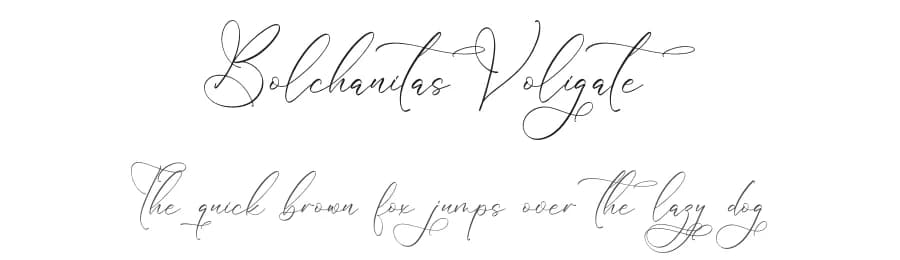 Bolchanitas Voligate
The quick brown fox jumps over the lazy dog